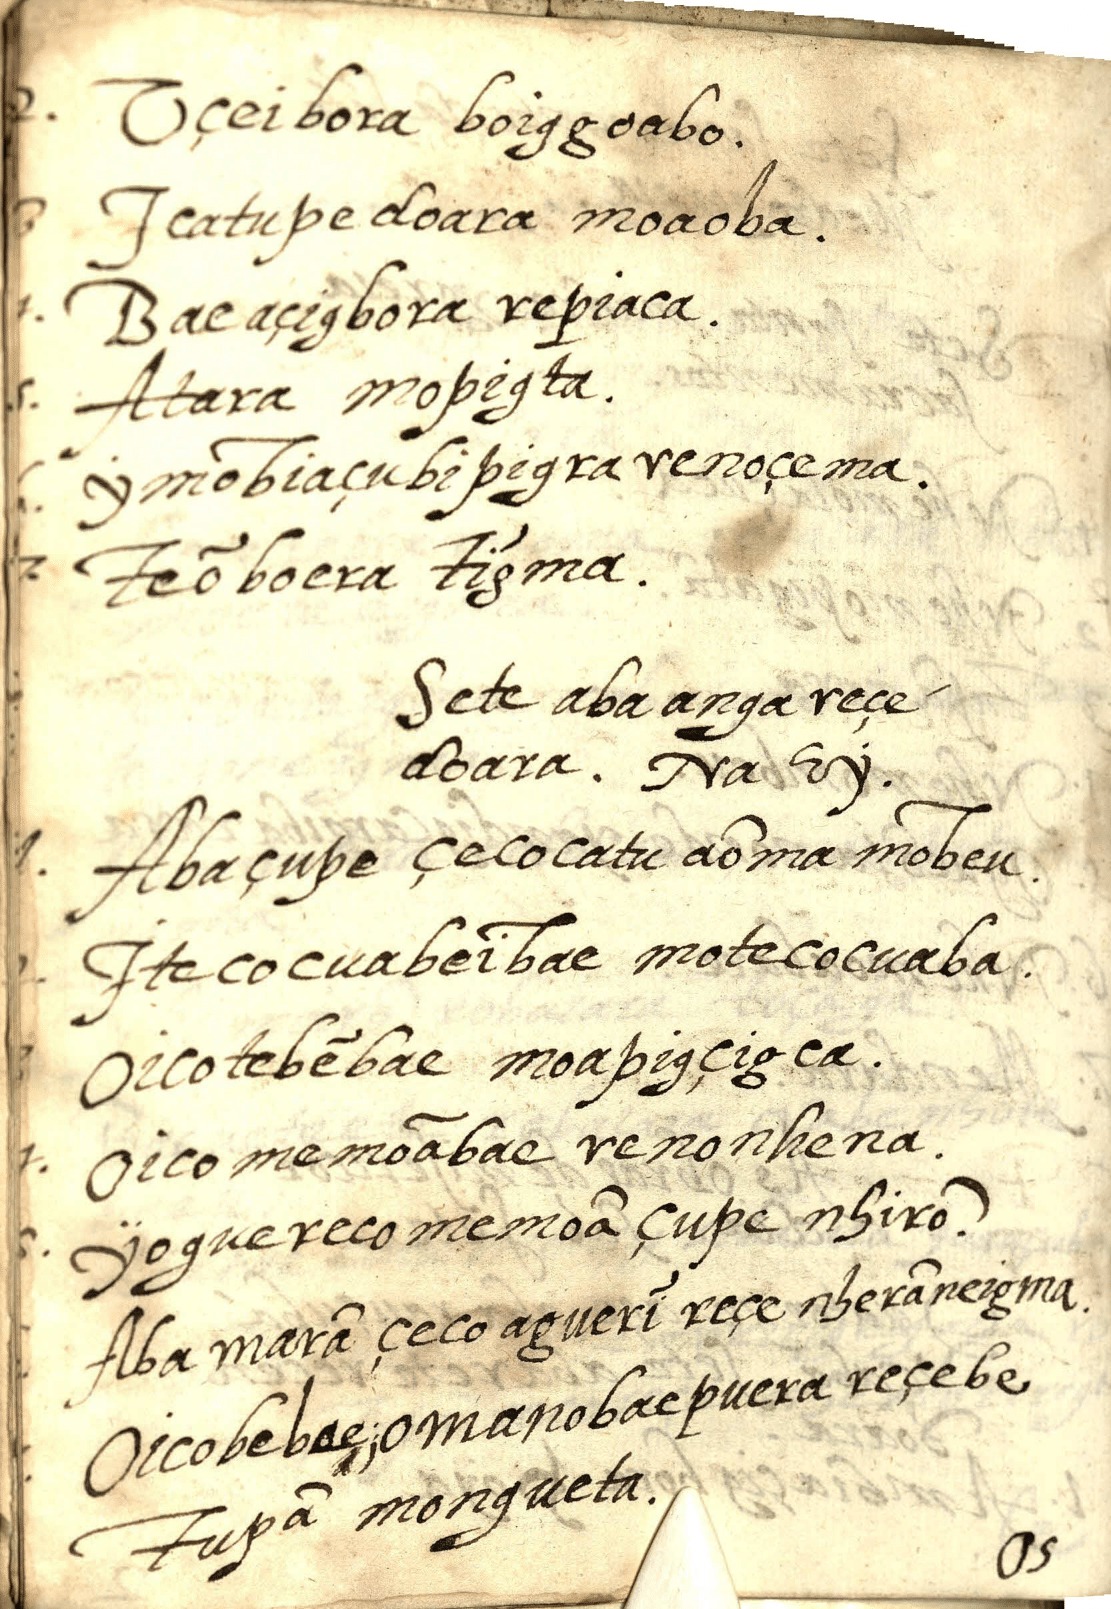 2. Vçei bora boiggoabo.
3 Jcatupe doara moaoba.
4. Bae açigbora repiaca.
5. Atara mopigta.
6. ỹmobiaçubi pigra renoçema.
7 Teõ boera tigma.
Sete aba anga reçe
doara. Na Vÿ.
1. Aba çupe çecocatu aõma mobeu.
2. Jtecocuabeĩbae motecocuaba.
3 Oicotebẽbae moapigçigca.
4. Oico memoãbae renonhena.
5. ÿoguereco memoã çupe nhirõ.
Aba marã çeco agueri reçe nherãneigma.
Oicobebae; omanobaepuera reçebe
Tupã mongueta.
Os